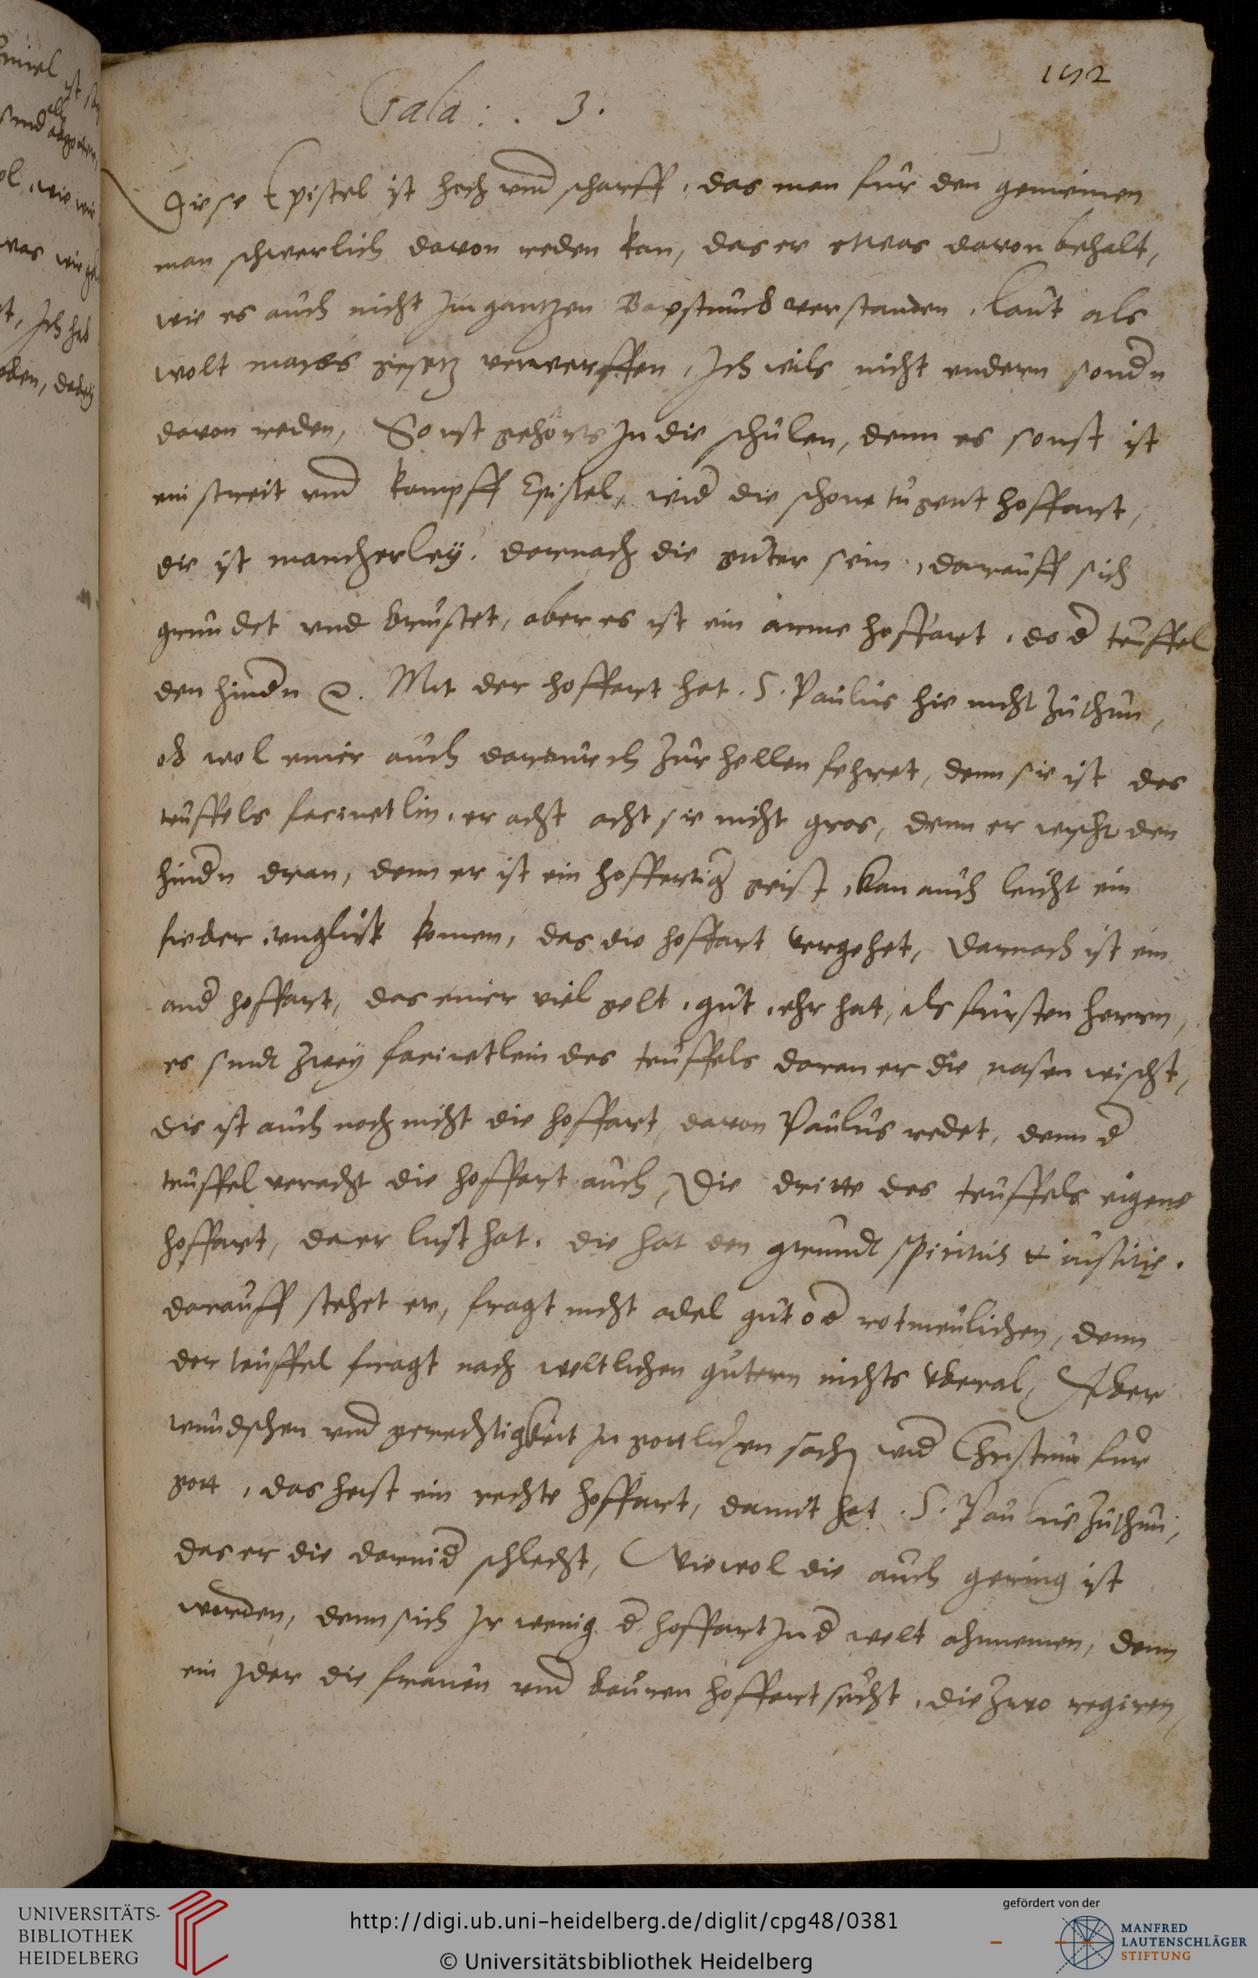 192
Gala: . 3.
Diese Epistel ist hoch vnd scharff, das man fur den gemeinen
man schwerlich davon reden kan, das er etwas davon behalt,
wie es auch nicht Im gantzen Bapstumb verstanden, laut als
wolt mans gesetz verwerffen, Ich wils nicht endern sondn
davon reden, Sonst gehorts In die schulen, denn es sonst ist
ein streit vnd kampff Epistel, wid die schone tugent hoffart,
die ist mancherley, darnach die guter sein, darauff sich
grundet vnd brustet, aber es ist ein arme hoffart, do d teuffel
den hindn Mit der hoffart hat S. Paulus hie nicht zuthun,
ob wol einer auch dardurch zur hellen fehret, denn sie ist des
teuffels facinetlin, er acht acht sie nicht gros, denn er wischt den
hindn dran, denn er ist ein hoffertig geist, kan auch leicht ein
fieber, vngluck komen, das die hoffart vergehet, Darnach ist ein
and hoffart, das einer viel gelt, gut, ehr hat, als fursten herrn,
es sindt zwey facinetlein des teuffels daran er die nasen wischt,
dis ist auch noch nicht die hoffart davon Paulus redet, denn d
teuffel veracht die hoffart auch, Die dritte des teuffels eigene
hoffart, da er lust hat, die hat den grundt spiritus et iustitię.
darauff stehet er, fragt nicht adel gut od rotmeulichen, denn
der teuffel fragt nach weltlichen gutern nichts vberal, Aber
vnd gerechtigkeit In gottlichen sach vnd Christum fur
gott, das heist ein rechte hoffart, damit hat S. Paulus zuthun,
das er die darnid schlecht, Wiewol die auch gering ist
worden, denn sich Ir wenig d hoffart In d welt ahnnemen, denn
ein Jder die frauen vnd bauren hoffart sucht, die zwo regiren,
UNIVERSITÄTS-
BIBLIOTHEK
HEIDELBERG
http://digi.ub.uni-heidelberg.de/diglit/cpg48/0381
© Universitätsbibliothek Heidelberg
gefördert von der
MANFRED
LAUTENSCHLÄGER
STIFTUNG